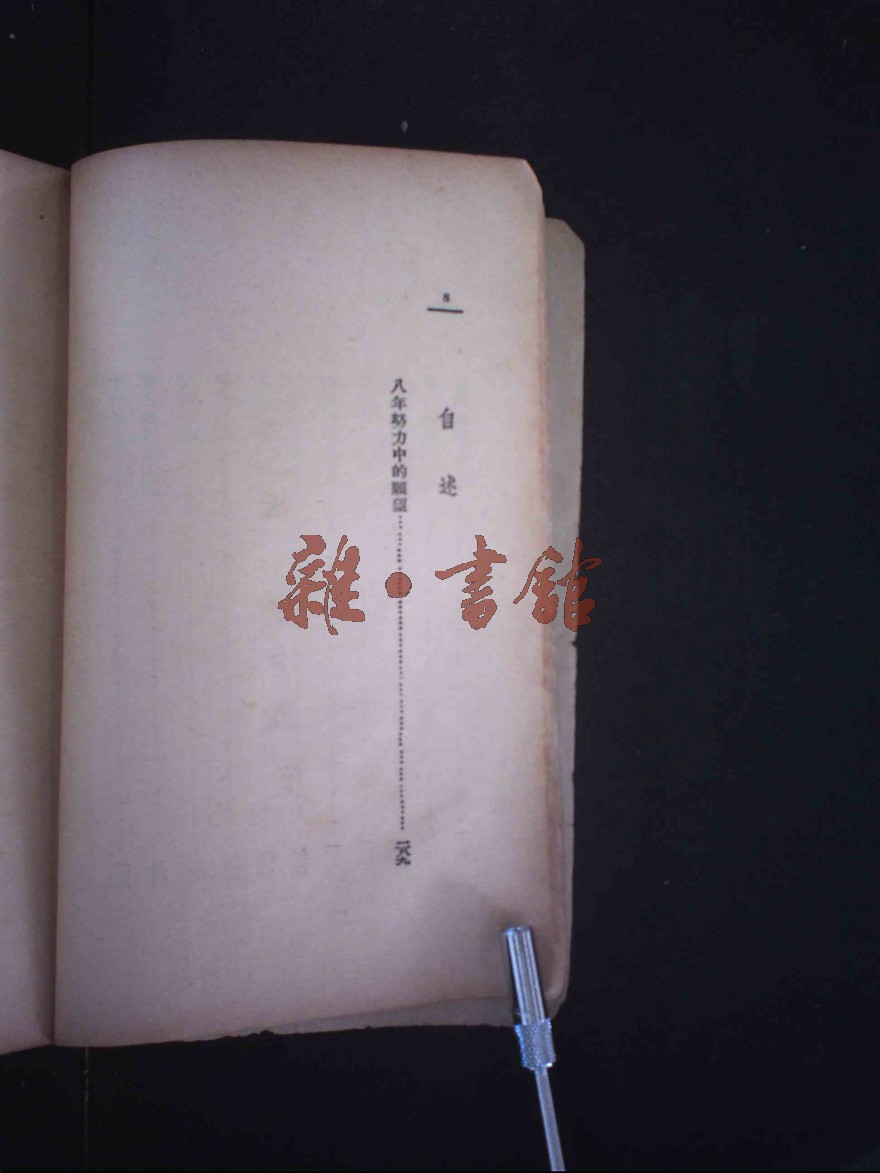 8
自述
八年努力中的願望……………………二八九
雜·書館